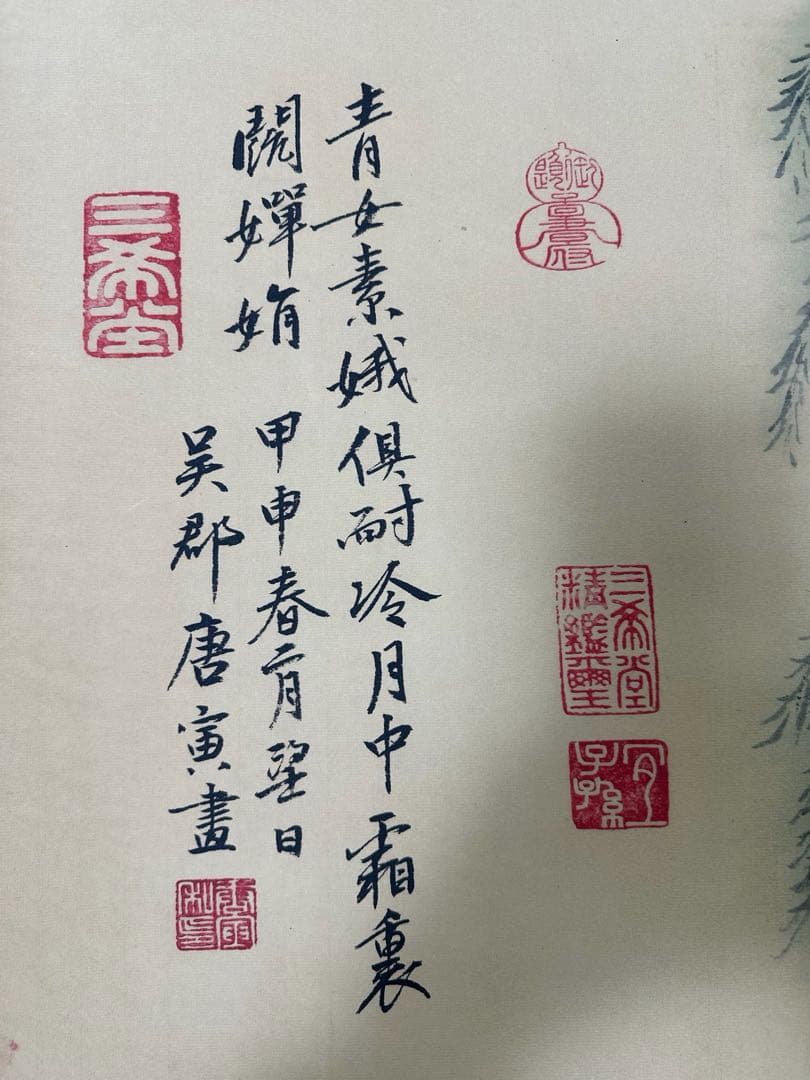 三希堂精鑑璽
宜子孫
青女素娥俱耐冷月中霜裏
鬪嬋娟 甲申春二月望日
吳郡唐寅畫
唐寅私印
三希堂